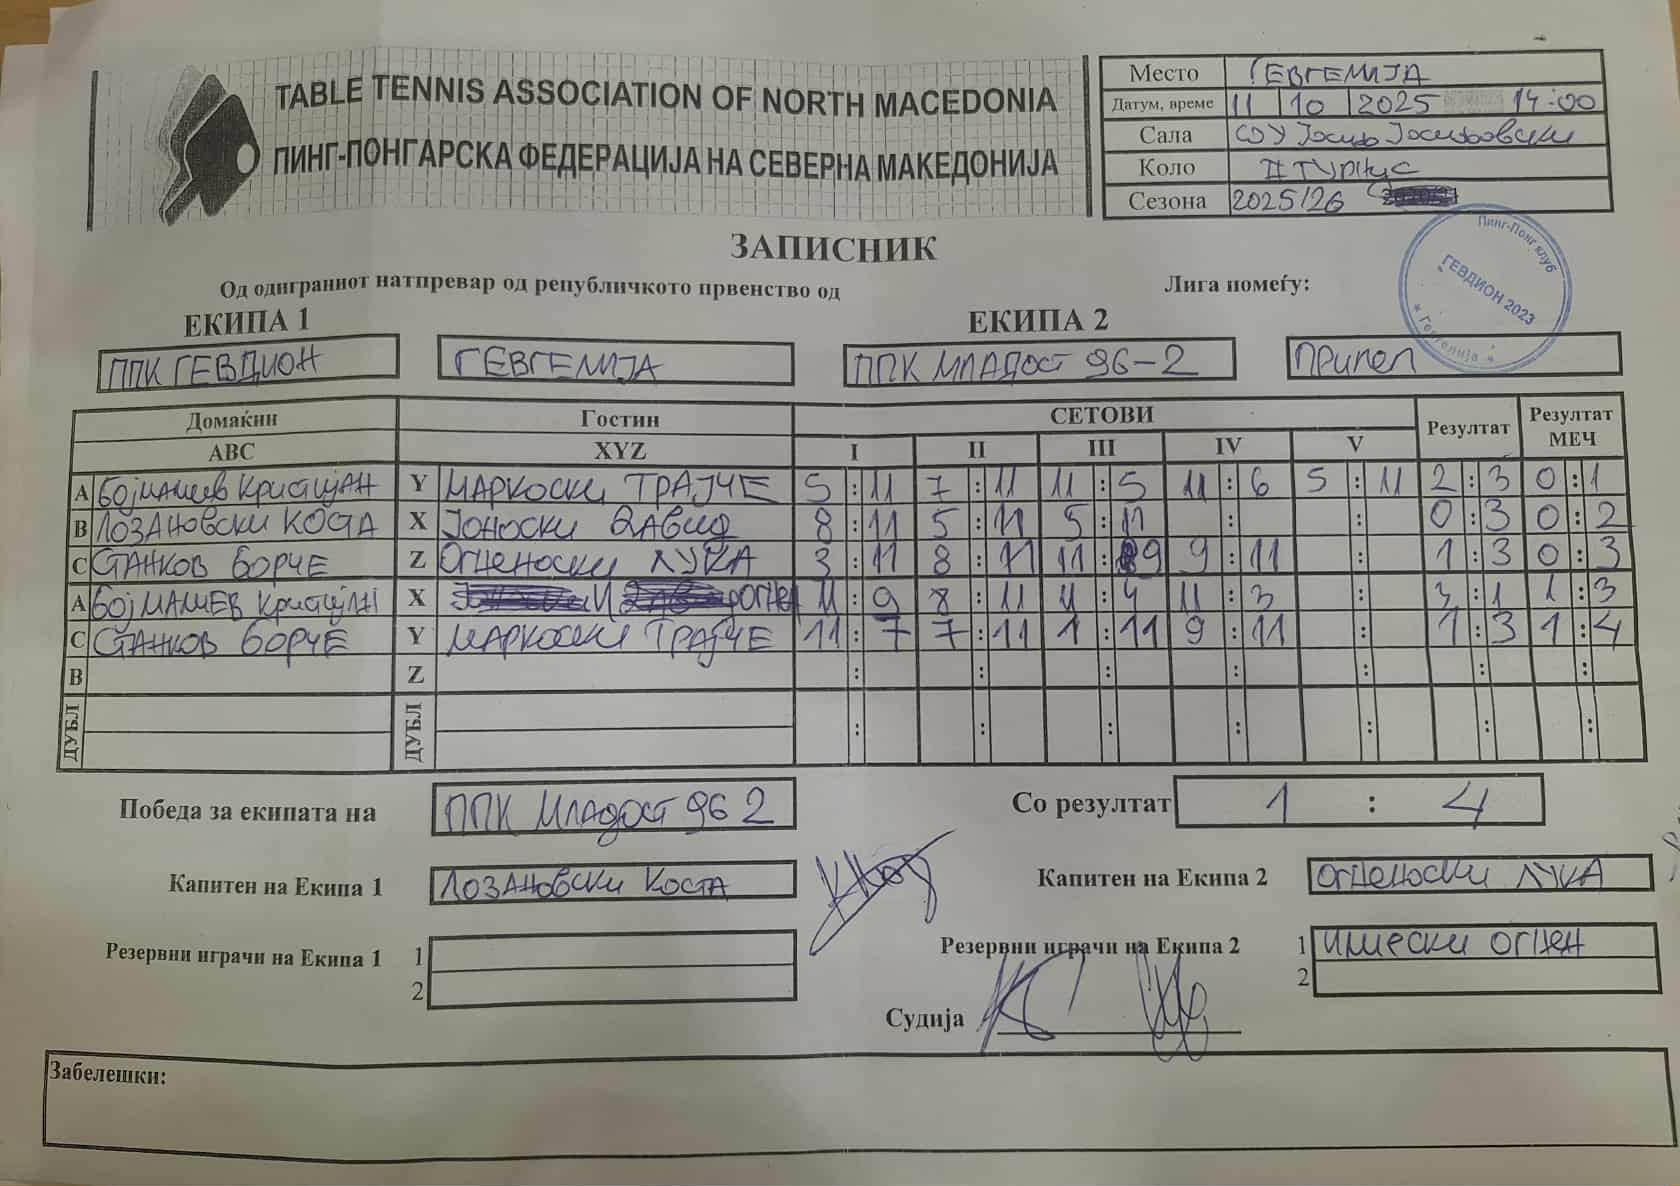 TABLE TENNIS ASSOCIATION OF NORTH MACEDONIA
ПИНГ-ПОНГАРСКА ФЕДЕРАЦИЈА НА СЕВЕРНА МАКЕДОНИЈА
Место ГЕВГЕЛИЈА
Датум, време 11 10 2025 14-00
Сала СОУ Јосиф Јосифовски
Коло II Турнус
Сезона 2025/26
ЗАПИСНИК
Од одиграниот натпревар од републичкото првенство од Лига помеѓу:
Пинг-Понг клуб
ГЕВДИОН 2023
Гевгелија
ЕКИПА 1 ЕКИПА 2
ППК ГЕВДИОН ГЕВГЕЛИЈА ППК МЛАДОСТ 96-2 ПРИЛЕП
Домаќин Гостин СЕТОВИ Резултат Резултат МЕЧ
ABC XYZ I II III IV V
A БОЈМАЛИЕВ КРИСТИЈАН Y МАРКОСКИ ТРАЈЧЕ 5 : 11 7 : 11 11 : 5 11 : 6 5 : 11 2 : 3 0 : 1
B ЛОЗАНОВСКИ КОСТА X ЈОНОСКИ ДАВИД 8 : 11 5 : 11 5 : 11 : : 0 : 3 0 : 2
C СТАНКОВ БОРЧЕ Z ОГНЕНОСКИ ЛУКА 3 : 11 8 : 11 11 : 9 9 : 11 : 1 : 3 0 : 3
A БОЈМАЛИЕВ КРИСТИЈАН X 11 : 9 8 : 11 11 : 4 11 : 3 : 3 : 1 1 : 3
C СТАНКОВ БОРЧЕ Y МАРКОСКИ ТРАЈЧЕ 11 : 7 7 : 11 1 : 11 9 : 11 : 1 : 3 1 : 4
B Z : : : : : : :
ДУБЛ ДУБЛ : : : : : : :
Победа за екипата на ППК МЛАДОСТ 96 2 Со резултат 1 : 4
Капитен на Екипа 1 ЛОЗАНОВСКИ КОСТА Капитен на Екипа 2 ОГНЕНОСКИ ЛУКА
Резервни играчи на Екипа 1 1 Резервни играчи на Екипа 2 1 ИЛИЕСКИ ОГНЕН
2 2
Судија
Забелешки: